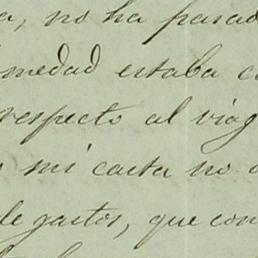 no ha pasad
medad estaba c
respecto al viag
mi carta no
de gastos, que con